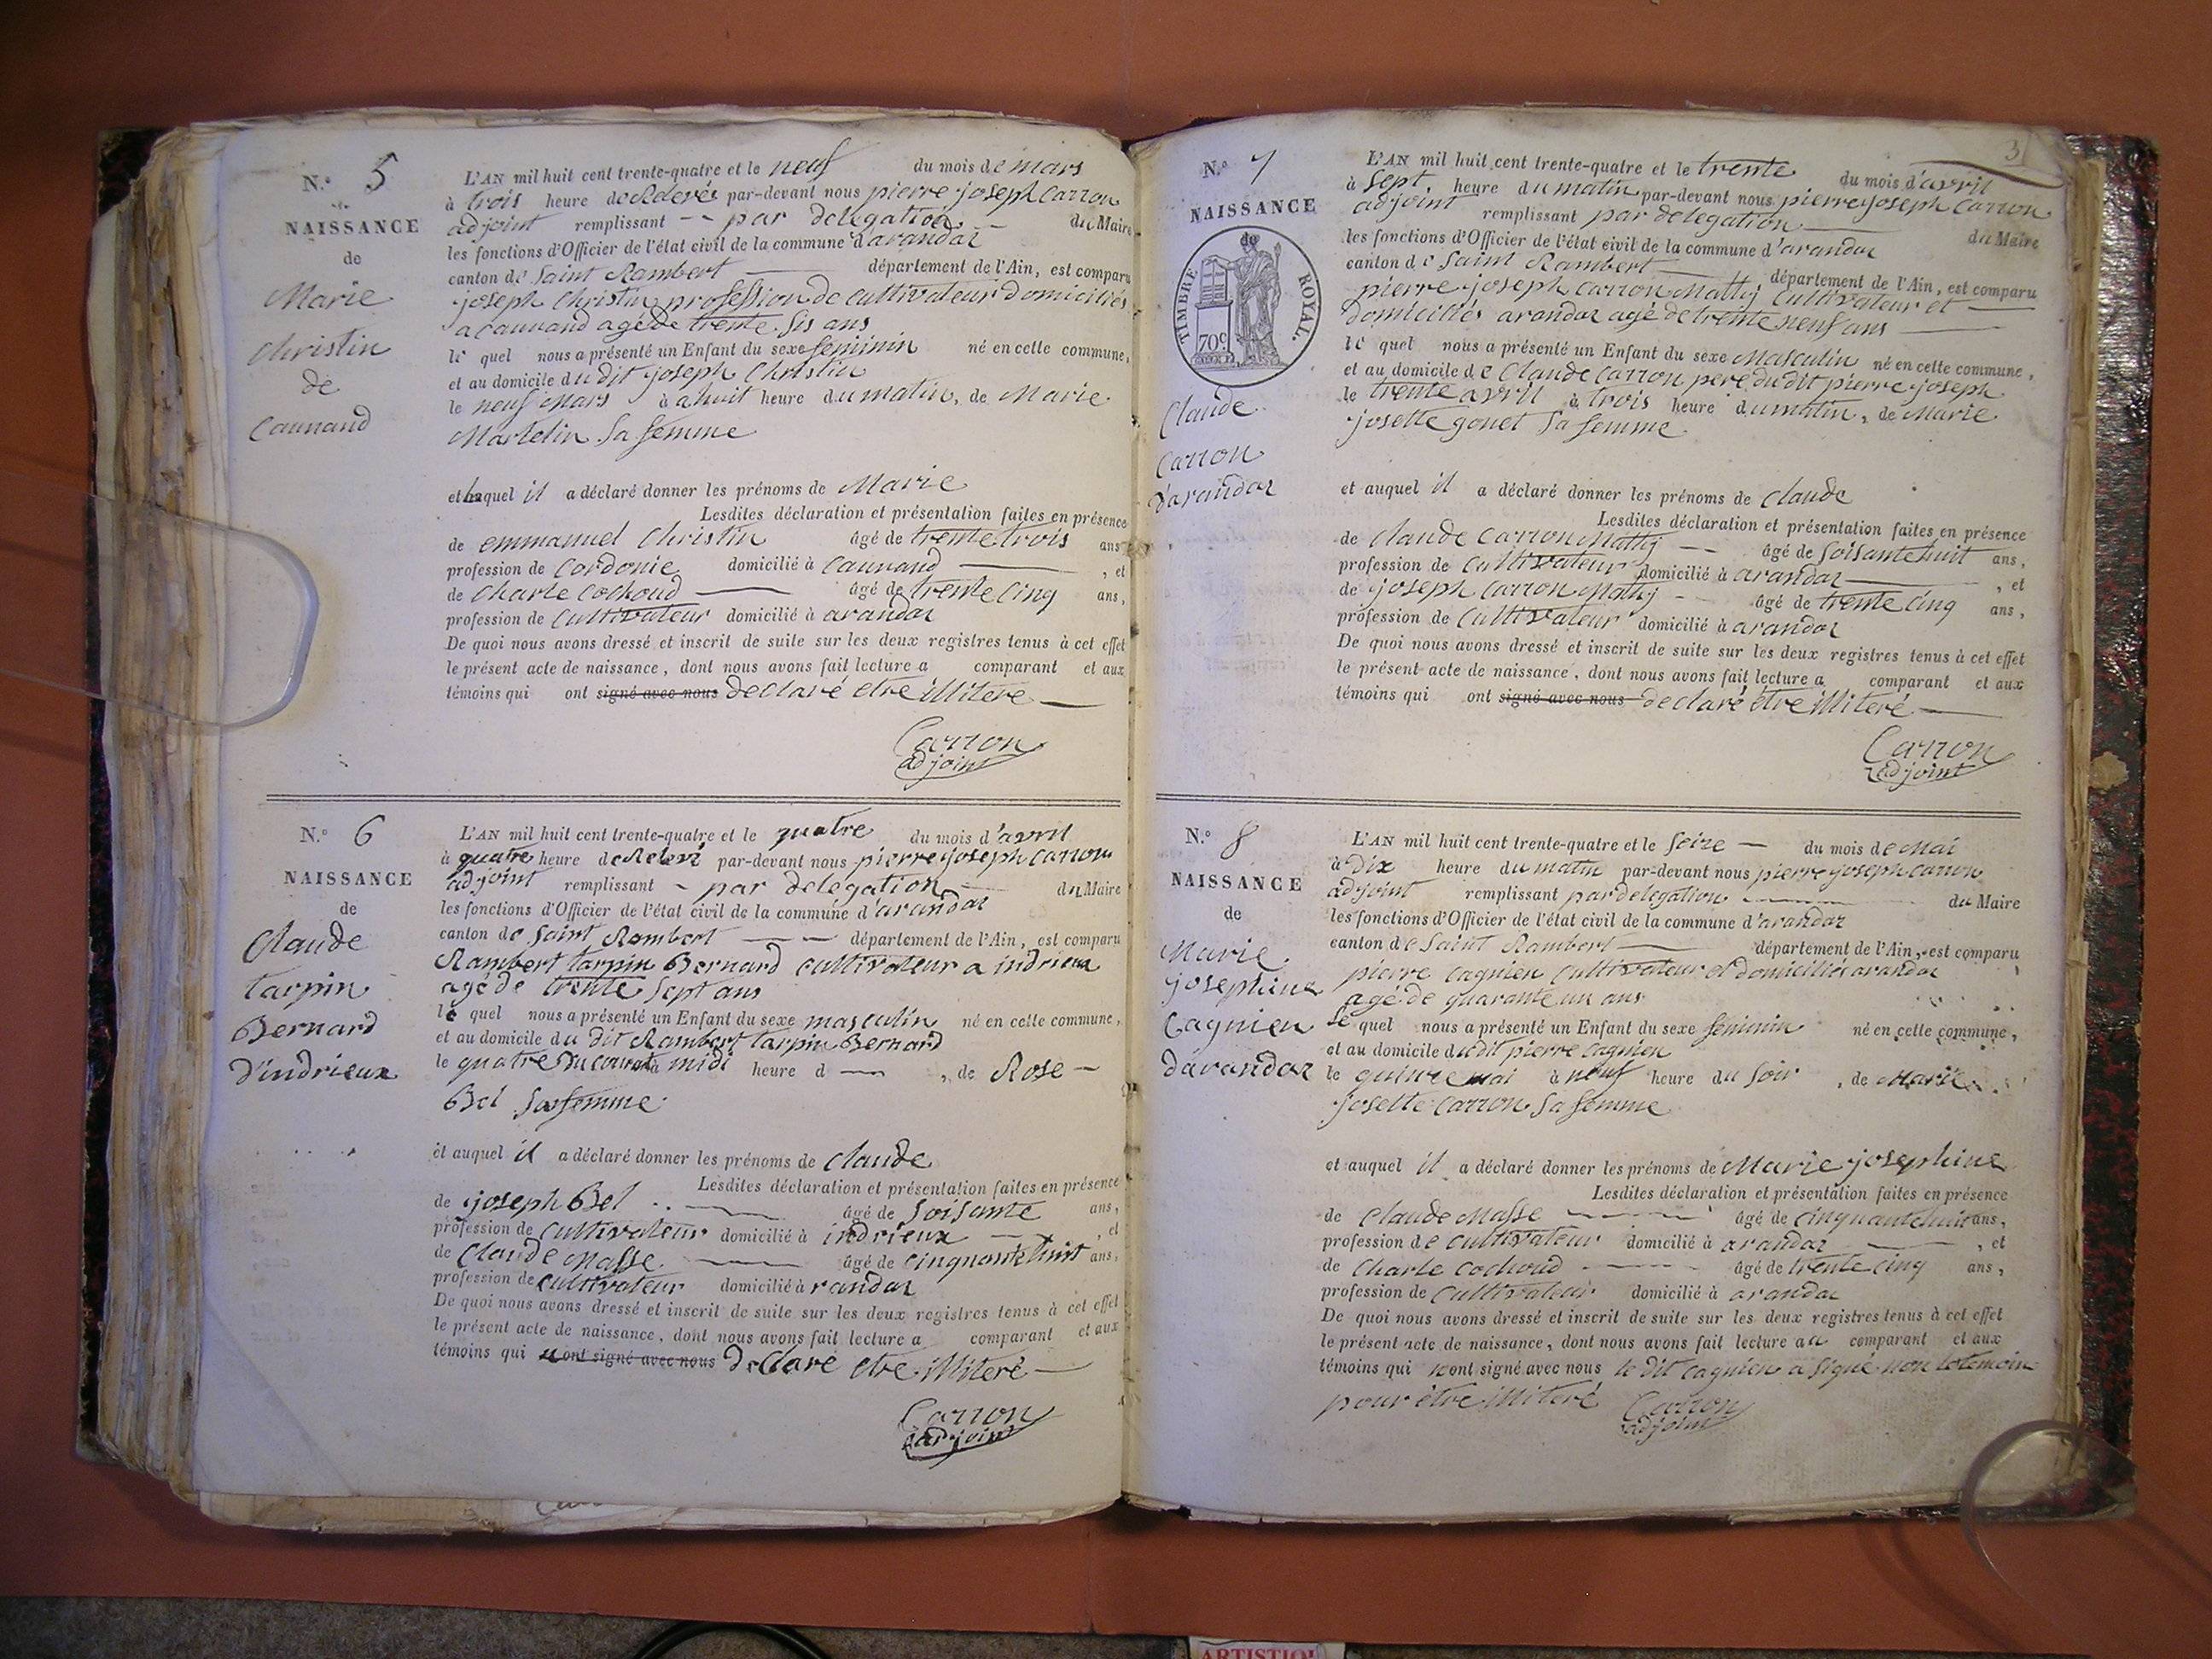 N.° 5
NAISSANCE
de
Marie
Christin
de
Caunand
L'AN mil huit cent trente-quatre et le neuf du mois de mars
à trois heure de Relevée par-devant nous pierre joseph Carron
adjoint remplissant par delegation du Maire
les fonctions d'Officier de l'état civil de la commune d'arandaz
canton de Saint Rambert département de l'Ain, est comparu
joseph Christin profession de cultivateur domiciliés
a caunand agé de trente sis ans
le quel nous a présenté un Enfant du sexe feminin né en celle commune,
et au domicile du dit joseph Christin
le neuf Mars à ahuit heure du matin, de Marie
Martelin Sa femme
et laquel il a déclaré donner les prénoms de Marie
Lesdites déclaration et présentation faites en présence
de emmanuel Christin âgé de trente trois ans
profession de Cordonie domicilié à Caunand , et
de Charle Cochoud âgé de trente Cinq ans,
profession de Cultivateur domicilié à arandaz
De quoi nous avons dressé et inscrit de suite sur les deux registres tenus à cet effet
le présent acte de naissance, dont nous avons fait lecture a comparant et aux
témoins qui ont signé avec nous declaré etre illitere
Carron
adjoint
N.° 6
NAISSANCE
de
Claude
tarpin
Bernard
d'indrieux
L'AN mil huit cent trente-quatre et le quatre du mois d'avril
à quatre heure de Relevé par-devant nous pierre joseph Carron
adjoint remplissant par delegation du Maire
les fonctions d'Officier de l'état civil de la commune d'arandaz
canton de Saint Rambert département de l'Ain, est comparu
Rambert tarpin Bernard cultivateur a indrieux
agé de trente Sept ans
le quel nous a présenté un Enfant du sexe masculin né en celle commune,
et au domicile du dit Rambert tarpin Bernard
le quatre du courant à midi heure d , de Rose
Bel Sa femme
et auquel il a déclaré donner les prénoms de Claude
Lesdites déclaration et présentation faites en présence
de joseph Bel âgé de Soisante ans,
profession de Cultivateur domicilié à indrieux , et
de Claude Masse âgé de Cinquante huit ans,
profession de cultivateur domicilié à randaz
De quoi nous avons dressé et inscrit de suite sur les deux registres tenus à cet effet
le présent acte de naissance, dont nous avons fait lecture a comparant et aux
témoins qui ont signé avec nous Declaré etre illiteré
Carron
adjoint
3
N.° 7
NAISSANCE
de
TIMBRE ROYAL.
70c
Claude
Carron
d'arandaz
L'AN mil huit cent trente-quatre et le trente du mois d'avril
à Sept heure du matin par-devant nous pierre joseph Carron
adjoint remplissant par delegation du Maire
les fonctions d'Officier de l'état civil de la commune d'arandaz
canton de Saint Rambert département de l'Ain, est comparu
pierre joseph Carron Mathy Cultivateur et
domiciliés arandaz agé de trente neuf ans
le quel nous a présenté un Enfant du sexe Masculin né en celle commune,
et au domicile de Claude Carron pere du dit pierre joseph
le trente avril à trois heure du matin, de Marie
josette gonet Sa femme
et auquel il a déclaré donner les prénoms de Claude
Lesdites déclaration et présentation faites en présence
de Claude Carron Mathy âgé de Soisante huit ans,
profession de Cultivateur domicilié à arandaz , et
de joseph Carron Mathy âgé de trente Cinq ans,
profession de Cultivateur domicilié à arandaz
De quoi nous avons dressé et inscrit de suite sur les deux registres tenus à cet effet
le présent acte de naissance, dont nous avons fait lecture a comparant et aux
témoins qui ont signé avec nous declaré etre illiteré
Carron
adjoint
N.° 8
NAISSANCE
de
Marie
josephine
Cagnien
d'arandaz
L'AN mil huit cent trente-quatre et le Seize du mois de Mai
à Dix heure du matin par-devant nous pierre joseph Carron
adjoint remplissant par delegation du Maire
les fonctions d'Officier de l'état civil de la commune d'arandaz
canton de Saint Rambert département de l'Ain, est comparu
pierre Cagnien Cultivateur et domiciliés arandaz
agé de quarante un ans
Le quel nous a présenté un Enfant du sexe feminin né en celle commune,
et au domicile du dit pierre Cagnien
le quinze mai à neuf heure du Soir , de Marie
josette Carron Sa femme
et auquel il a déclaré donner les prénoms de Marie josephine
Lesdites déclaration et présentation faites en présence
de Claude Masse âgé de Cinquante huit ans,
profession de cultivateur domicilié à arandaz , et
de Charle Cochoud âgé de trente Cinq ans,
profession de Cultivateur domicilié à arandaz
De quoi nous avons dressé et inscrit de suite sur les deux registres tenus à cet effet
le présent acte de naissance, dont nous avons fait lecture au comparant et aux
témoins qui nont signé avec nous le dit Cagnien a signé non le temoin
pour être illiteré Carron
adjoint
ARTISTIQU